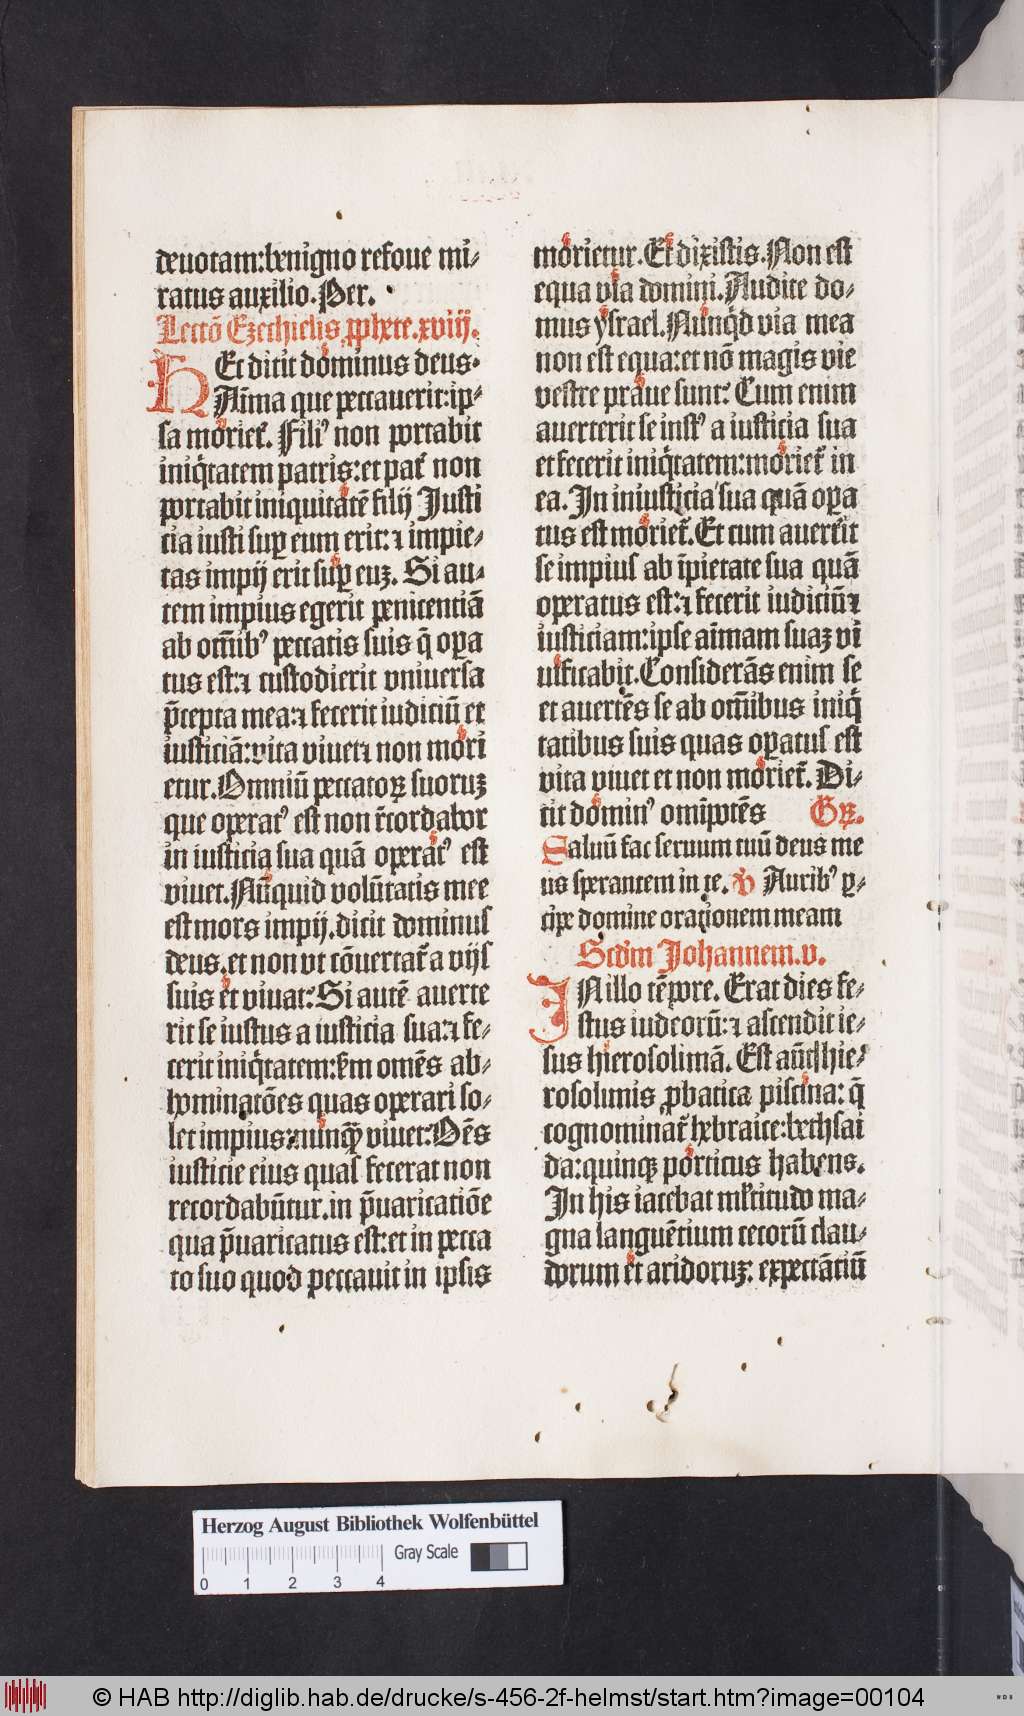 deuotam:benigno refoue mi-
ratus auxilio.Per.
Lectō Ezechielis ꝓphete.xviij.
HEc dicit dominus deus.
Aīma que peccauerit:ip-
sa morieť. Filiꝰ non portabit
iniq̇tatem patris:et pať non
portabit iniquitatē filij Justi
cia iusti suꝑ eum erit:⁊ impie-
tas impij erit suꝑ euꝫ. Si au-
tem impius egerit penitentiā
ab om̄ibꝰ peccatis suis q̄ oꝑa
tus est:⁊ custodierit vniuersa
p̄cepta mea:⁊ fecerit iudiciū et
iusticiā:vita viuet⁊ non mori
etur.Omniū peccatoꝝ suoruꝫ
que operatꝰ est non r̄cordabor
in iusticia sua quā operatꝰ est
viuet.Nūquid volūtatis mee
est mors impij.dicit dominus
deus.et non vt cōuertať a vijs
suis et viuat:Si autē auerte
rit se iustus a iusticia sua:⁊ fe-
cerit iniq̇tatem:ẜm omēs ab-
hominatōes quas operari so-
let impius:nunqͥ viuet:Oēs
iusticie eius quas fecerat non
recordabūtur.in p̄uaricatiōe
qua p̄uaricatus est:et in pecca
to suo quod peccauit in ipsis
morietur.Et dixistis.Non est
equa via domini.Audite do-
mus ysrael.Nunq̇d via mea
non est equa:et nō magis vie
vestre praue sunt: Cum enim
auerterit se iustꝰ a iusticia sua
et fecerit iniq̇tatem:morieť in
ea.In iniusticia sua quā oꝑa
tus est morieť.Et cum auerťit
se impius ab īpietate sua quā
operatus est:⁊ fecerit iudiciū⁊
iusticiam:ipse aīmam suaꝫ vi
uificabit.Considerās enim se
et auertēs se ab om̄ibus iniq̇
tatibus suis quas oꝑatus est
vita viuet et non morieť. Di-
cit dominꝰ omīpotēs Gꝝ.
Saluū fac seruum tuū deus me
us sperantem in te. ℣ Auribꝰ ꝑ-
cipe domine orationem meam
Scd̓m Johannem.v.
IN illo tēpore. Erat dies fe-
stus iudeorū:⁊ ascendit ie-
sus hierosolimā. Est aūt hie-
rosolimis ꝓbatica piscina: q̄
cognominať hebraice:bethsai
da:quinqꝫ porticus habens.
In his iacebat mľtitudo ma-
gna languētium cecorū clau-
dorum et aridoruꝫ: expectātiū
Herzog August Bibliothek Wolfenbüttel
Gray Scale
0 1 2 3 4
© HAB http://diglib.hab.de/drucke/s-456-2f-helmst/start.htm?image=00104